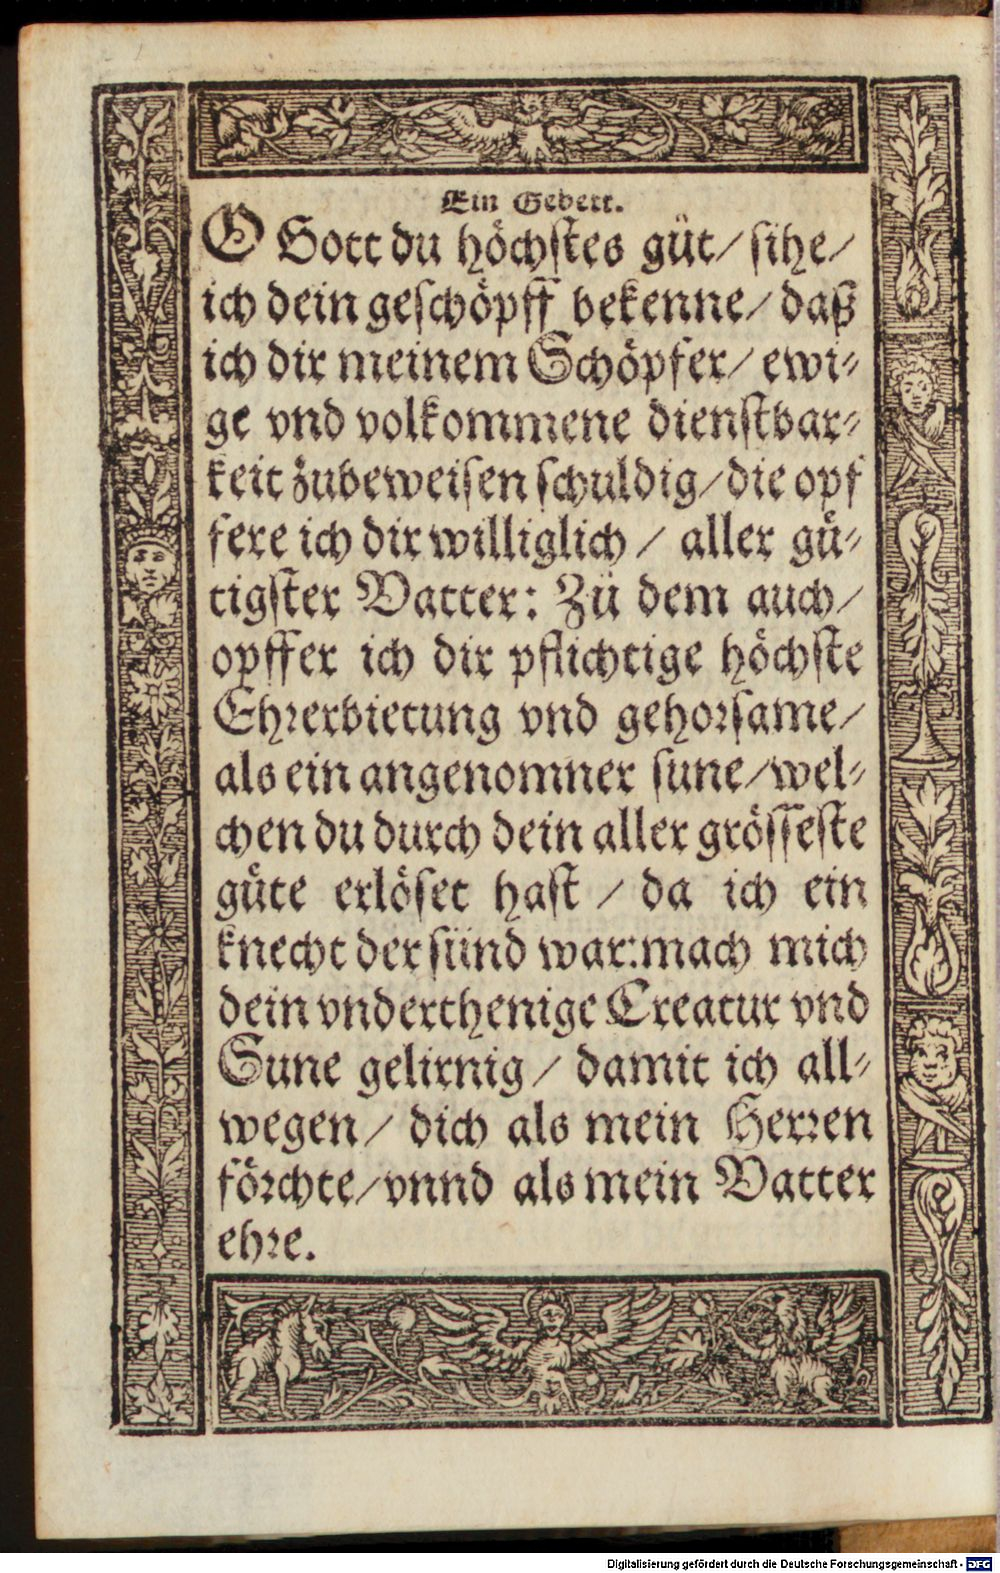 Ein Gebett.
O Gott du höchstes güt/ sihe/
ich dein geschöpff bekenne/ daß
ich dir meinem Schöpfer/ ewi-
ge vnd volkommene dienstbar-
keit zubeweisen schuldig/ die opf
fere ich dir williglich/ aller gü-
tigster Vatter: Zů dem auch/
opffer ich dir pflichtige höchste
Ehrerbietung vnd gehorsame/
als ein angenomner sune/ wel-
chen du durch dein aller grösseste
güte erlöset hast/ da ich ein
knecht der sünd war: mach mich
dein vnderthenige Creatur vnd
Sune gelirnig/ damit ich all-
wegen/ dich als mein Herren
förchte/ vnnd als mein Vatter
ehre.
Digitalisierung gefördert durch die Deutsche Forschungsgemeinschaft - DFG